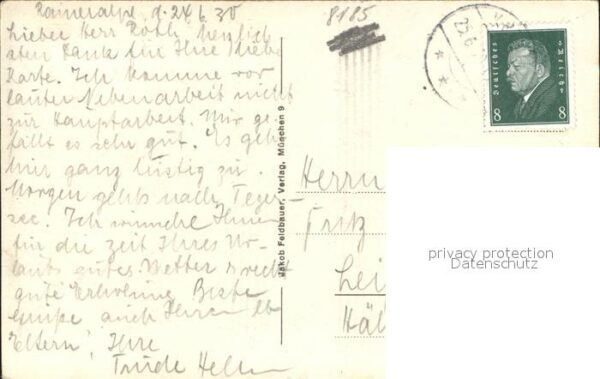 Raineralpe, d. 24.6.30
Lieber Herr Roth, herzlich
sten Dank für Ihre liebe
Karte. Ich komme vor
lauter Nebenarbeit nicht
zur Hauptarbeit. Mir ge-
fällt es sehr gut. Es geht
hier ganz lustig zu.
Morgen gehts nach Teger-
see. Ich wünsche Ihnen
für die Zeit Ihres Ur-
laubs gutes Wetter & recht
gute Erholung. Beste
Grüße auch Ihren lb
Eltern, Ihre
Trude
8185
Jakob Feldbauer, Verlag, München 9
Deutsches Reich
8 8
Herrn
Fritz
Lei
Häl
privacy protection
Datenschutz